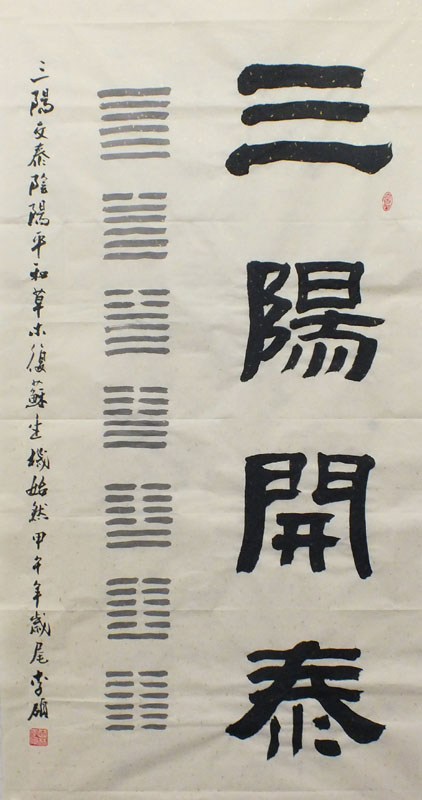 三陽開泰
三陽交泰陰陽平和草木復蘇生機始然甲午年歲尾李碩